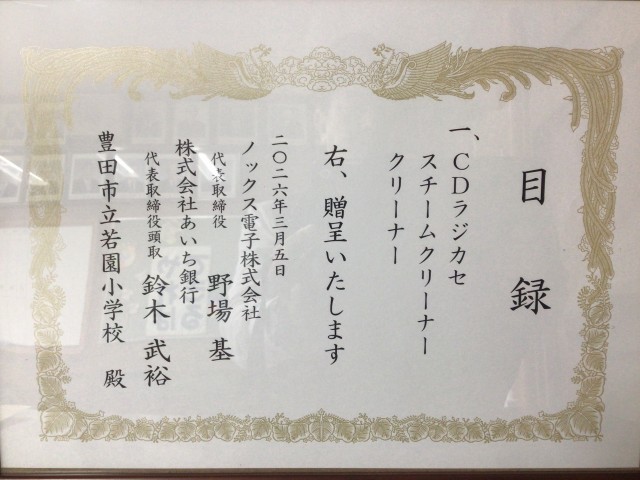 目録
一、CDラジカセ
スチームクリーナー
クリーナー
右、贈呈いたします
二〇二六年三月五日
ノックス電子株式会社
代表取締役 野場 基
株式会社あいち銀行
代表取締役頭取 鈴木 武裕
豊田市立若園小学校 殿